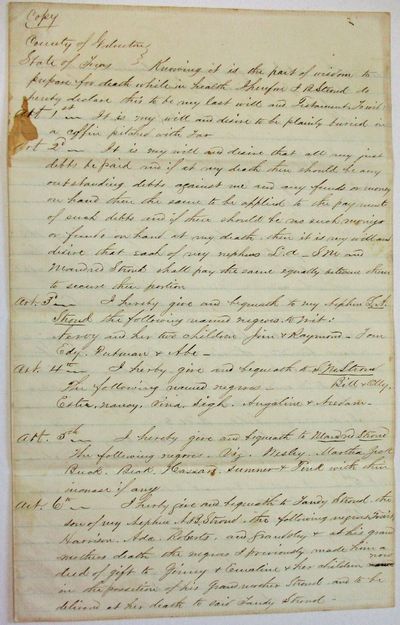 Copy
County of Galveston
State of Texas } Knowing it is the part of wisdom to
prepare for death while in health. Therefore I B Stroud do
hereby declare this to be my last will and Testament, to wit:
Art 1st It is my will and desire to be plainly buried in
a coffin pitched with tar
Art 2d It is my will and desire that all my just
debts be paid and if at my death there should be any
outstanding debts against me and any funds or money
on hand then the same to be applied to the payment
of such debts and if there should be no such moneys
or funds on hand at my death then it is my will and
desire that each of my nephews L.A. and
Mandred Stroud shall pay the same equally between them
to secure their portion
Art. 3d I hereby give and bequeath to my Nephew L.A.
Stroud the following named negroes to wit:
and her two children Jim & Raymond - Tom
Putman & Abe -
Art. 4th I hereby give and bequeath to Stroud
the following named negroes -
Ester, Nancy, Angaline &
Art. 5th I hereby give and bequeath to Mandred Stroud
the following negroes. Viz, Wesley, Martha
Buck, Hassan, Sumner & with their
increase if any
Art. 6th I hereby give and bequeath to Tandy Stroud, the
son of my Nephew Stroud, the following negroes to wit,
Harrison, Ada, Roberts, and & at his grand
mothers death the negroes I previously made him a
deed of gift to Jinny & Emaline & her children now
in the possession of his Grandmother Stroud and to be
delivered at her death to said Tandy Stroud -